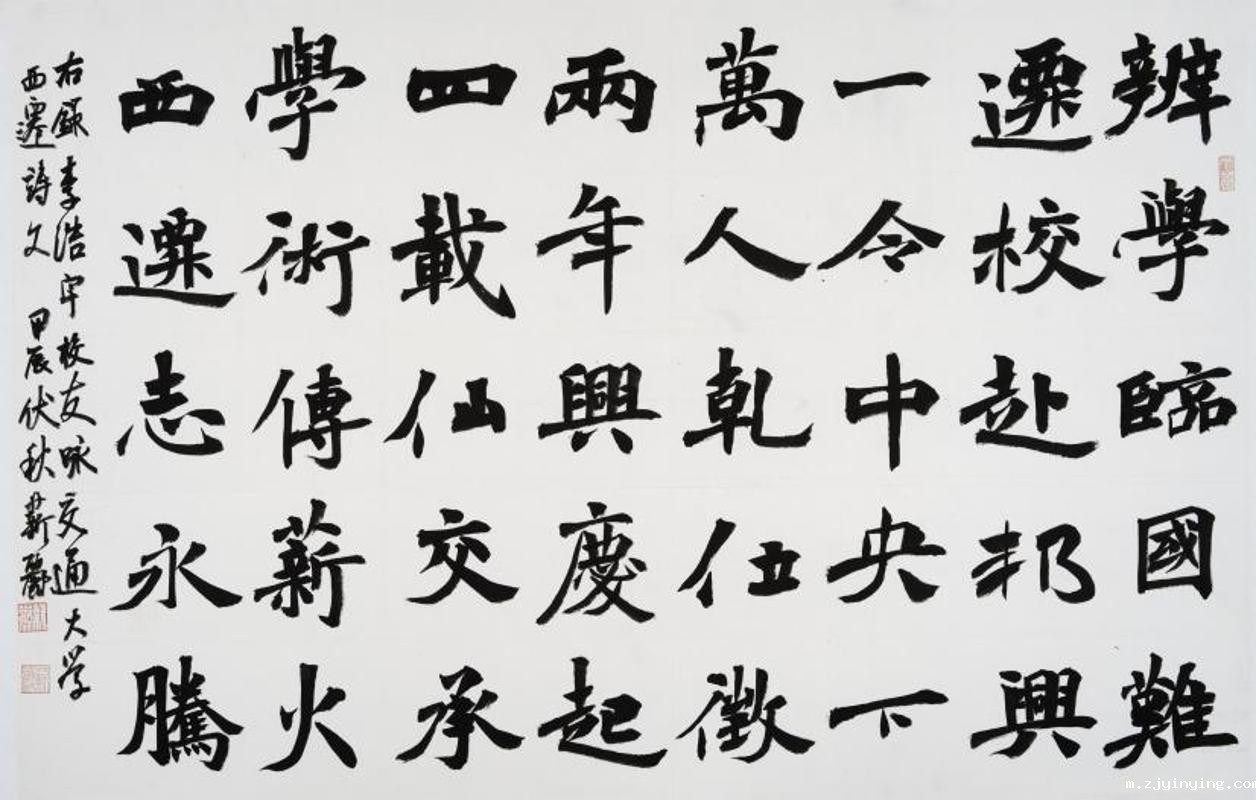 辨學臨國難
遷校赴邦興
一令中央下
萬人乾伍徵
兩年興慶起
四載仙交承
學術傳薪火
西遷志永騰
右錄李浩宇校友咏交通大学
西遷詩文 甲辰伏秋薪麗
m.zjyinying.com